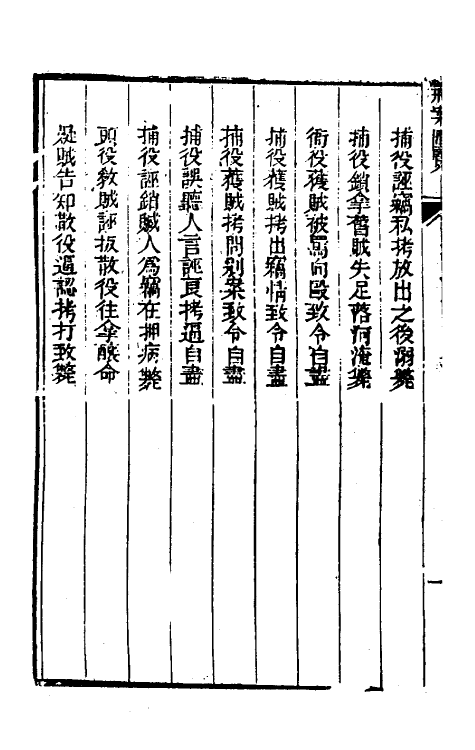 捕役誣竊私拷放出之後溺斃
捕役鎖拿舊賊失足落河淹斃
衙役獲賊被罵向毆致令自盡
捕役獲賊拷出竊情致令自盡
捕役獲賊拷問别案致令自盡
捕役誤聽人言誣良拷逼自盡
捕役誣銷賊人為竊在押病斃
頭役教賊誣扳散役往拿釀命
疑賊告知散役逼認拷打致斃
一